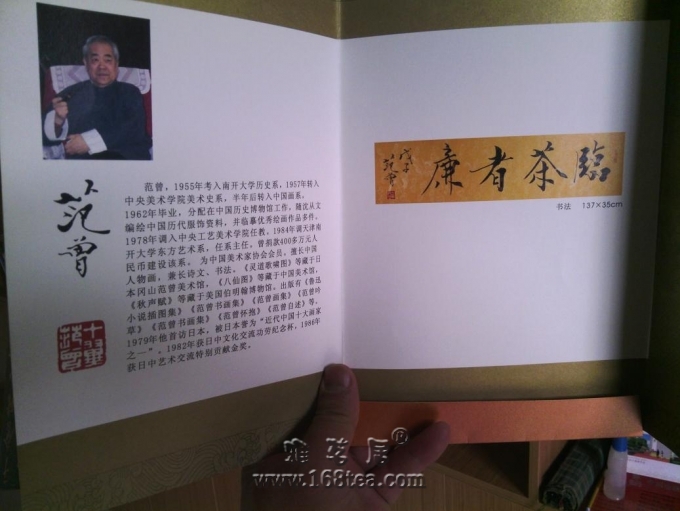 范曾
范曾，1955年考入南开大学历史系，1957年转入
中央美术学院美术史系，半年后转入中国画系。
1962年毕业，分配在中国历史博物馆工作，随沈从文
编绘中国历代服饰资料，并临摹优秀绘画作品多件，
1978年调入中央工艺美术学院任教。1984年调天津南
开大学东方艺术系，任系主任，曾捐款400多万元人
民币建设该系。 为中国美术家协会会员，擅长中国
人物画，兼长诗文、书法，《灵道歌啸图》等藏于日
本冈山范曾美术馆，《八仙图》等藏于中国美术馆，
《秋声赋》等藏于美国伯明翰博物馆。出版有《鲁迅
小说插图集》《范曾书画集》《范曾画集》《范曾吟
草》《范曾书画集》《范曾怀抱》《范曾自述》等。
1979年他首访日本，被日本誉为“近代中国十大画家
之一”，1982年获日中文化交流功劳纪念杯，1986年
获日中艺术交流特别贡献金奖。
臨茶者廉
戊子
范曾
书法 137×35cm
雅茗居®
www.168tea.com